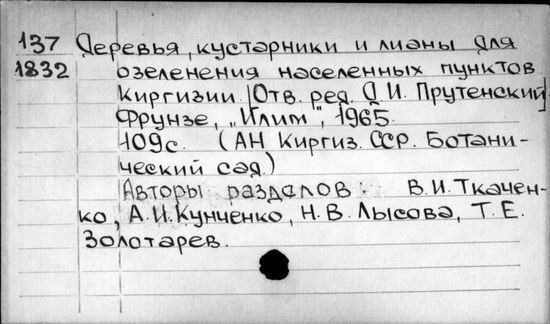 137 Деревья, кустарники и лианы для
1832 озеленения населенных пунктов
Киргизии [Отв. ред. Д И. Прутенский]
Фрунзе, „Илим", 1965.
109с. (АН Киргиз. ССР. Ботани-
ческий сад.)
Авторы разделов: В.И. Ткачен-
ко, А.И. Кунченко, Н. В. Лысова, Т. Е.
Золотарев.